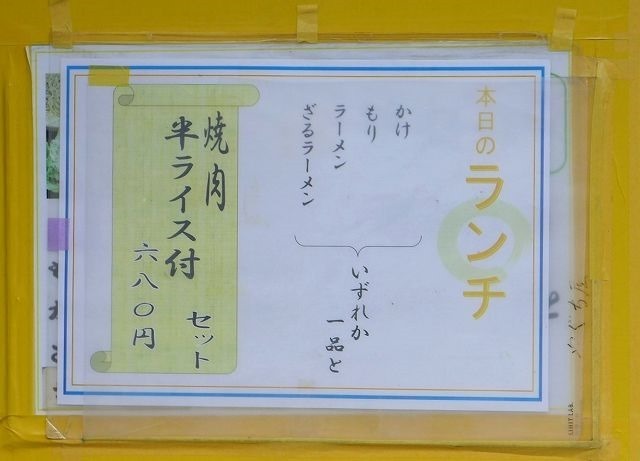 本日の
ランチ
かけ
もり
ラーメン
ざるラーメン
いずれか
一品と
焼肉
半ライス付
セット
六八〇円
LIHIT LAB.